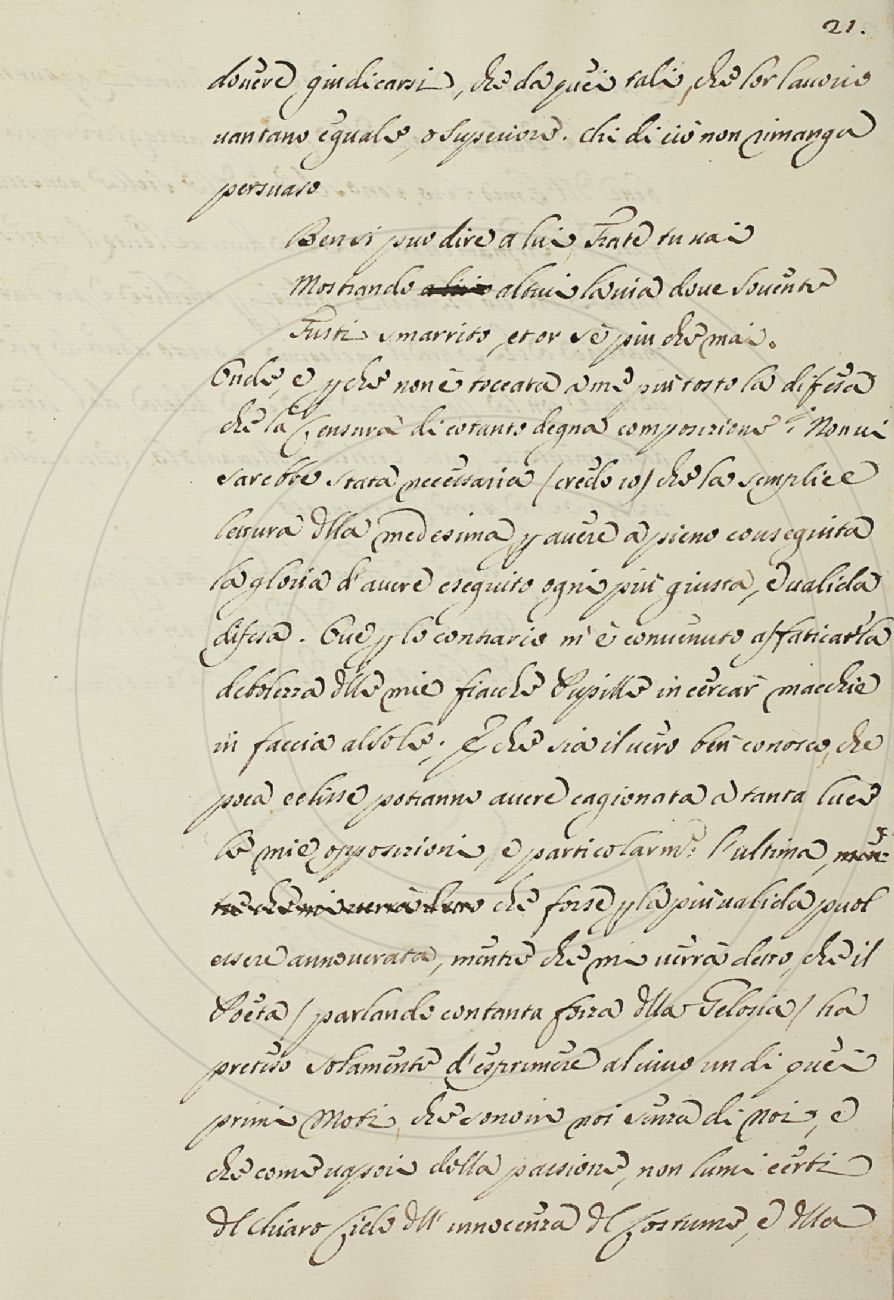 21.
dovere giudicarsi, che da quei tali, che lor lavorio
vantano eguale, o superiore. Chi di ciò non rimanga
persuaso
Ben si puo dire a lui, Frate tu vai
Mostrando altrui la via dove sovente
Fusti smarrito, et or sè piu che mai.
Onde, e p che non è toccata a me piu tosto la difesa
che la Censura di cotanto degna composizione? Non vi
sarebbe stata necessaria (credo io) che la semplice
lettura dlla medesima p avere a pieno conseguita
la gloria d'avere eseguito ogni piu giusta, e valida
difesa. Ove p lo contrario m'è convenuto affaticar la
debolezza dlle mie fiacche Pupille in cercar macchie
in faccia al Sole; E che sia il vero ben conosco, che
poca eclisse potranno avere cagionata a tanta luce
le mie opposizioni, e particolarm.e l'ultima,
che forse p la piu valida puol
essere annoverata, mentre che mi verrà detto, che il
Poeta (parlando con tanta forza dlla Gelosia) ha
preteso solamente d'esprimere al vivo un di quei
primi Moti, che sono in noi senza di noi, e
che come vapori della passione, non lumi certi
dl chiaro Cielo dll'innocenza dl Costume, e dlla